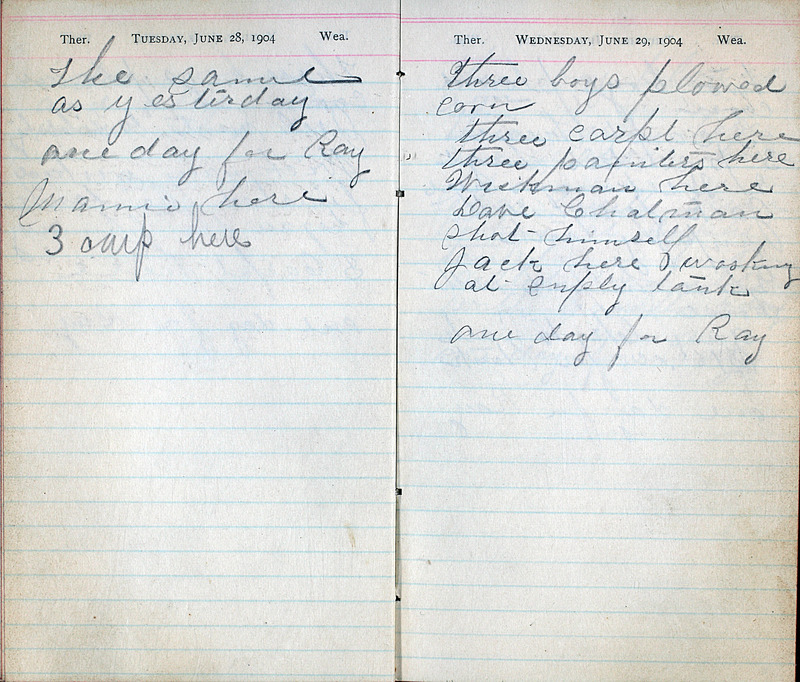 Ther. TUESDAY, JUNE 28, 1904 Wea.
The same
as yesterday
one day for Ray
Mamie here
3 carp here
Ther. WEDNESDAY, JUNE 29, 1904 Wea.
three boys plowed
corn
three carpt here
three painters here
here
Dave Chalman
shot himself
Jack here working
at empty tank
one day for Ray